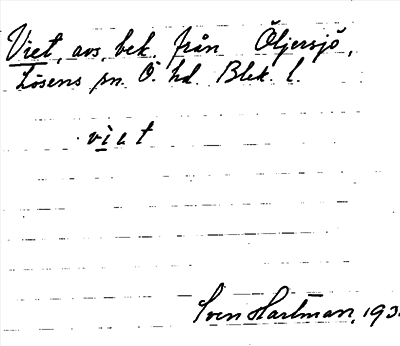 Viet, avs. bek. från Öljersjö,
Lösens sn. Ö. hd. Blek. l.
viet
Sven Hartman, 193